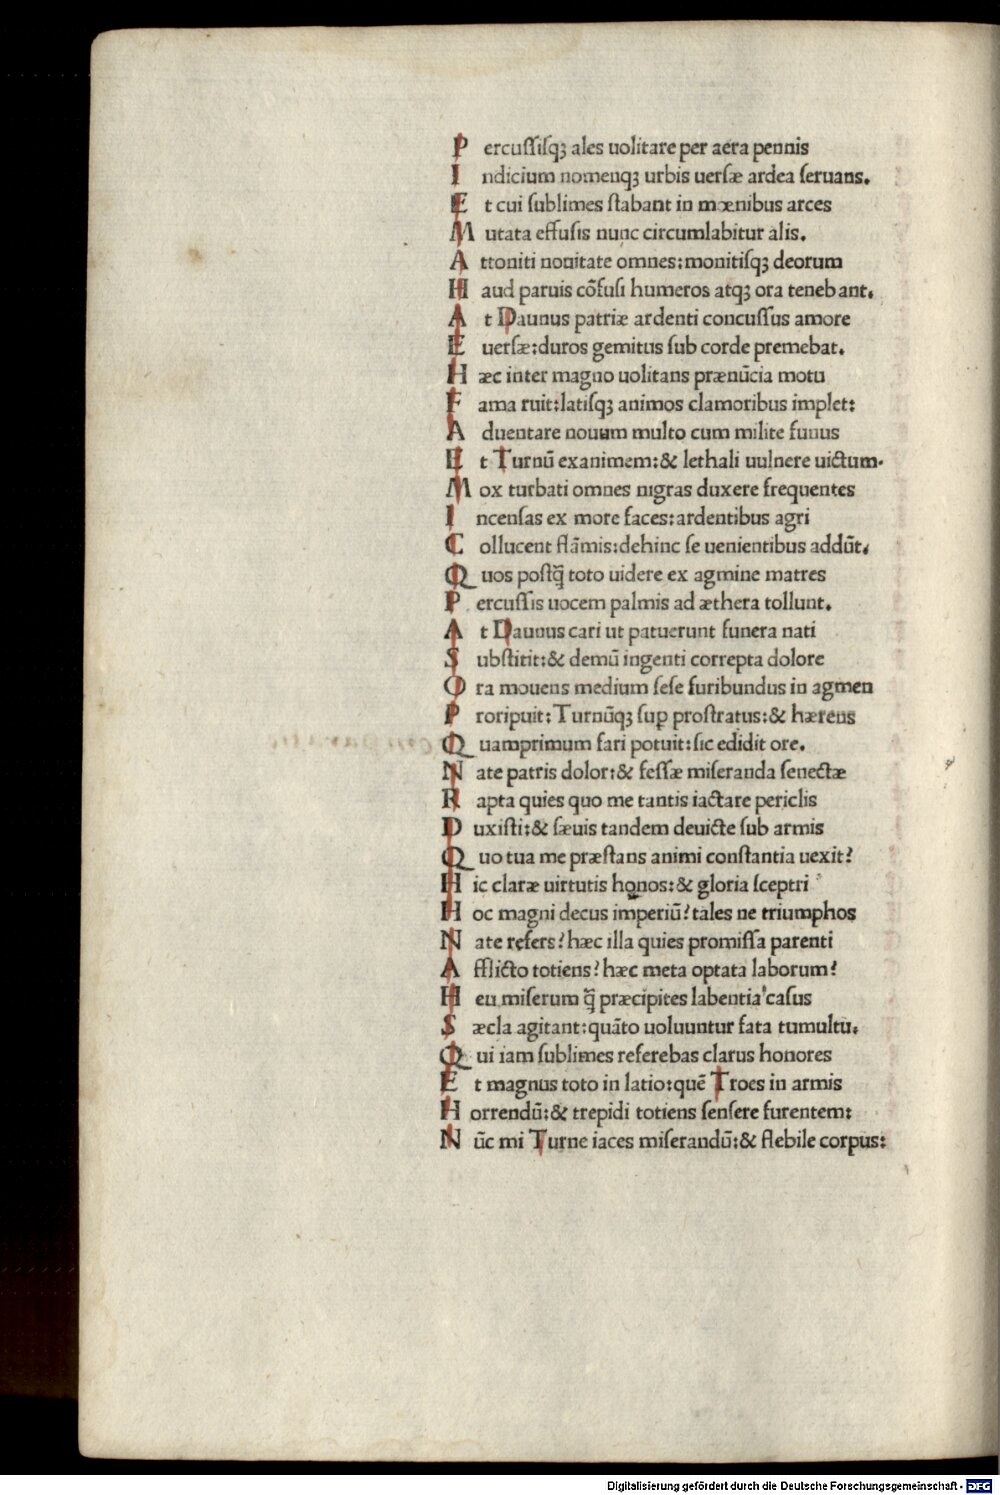 P ercuſſiſqꝫ ales uolitare per aera pennis
I ndicium nomenqꝫ urbis uerſæ ardea ſeruans.
E t cui ſublimes ſtabant in mœnibus arces
M utata effuſis nunc circumlabitur alis.
A ttoniti nouitate omnes: monitiſqꝫ deorum
H aud paruis cõfuſi humeros atqꝫ ora tenebant.
A t Daunus patriæ ardenti concuſſus amore
E uerſæ: duros gemitus ſub corde premebat.
H æc inter magno uolitans prænũcia motu
F ama ruit: latiſqꝫ animos clamoribus implet:
A duentare nouum multo cum milite funus
E t Turnũ exanimem: & lethali uulnere uictum.
M ox turbati omnes nigras duxere frequentes
I ncenſas ex more faces: ardentibus agri
C ollucent flãmis: dehinc ſe uenientibus addũt.
Q uos poſtq̃ toto uidere ex agmine matres
P ercuſſis uocem palmis ad æthera tollunt.
A t Daunus cari ut patuerunt funera nati
S ubſtitit: & demũ ingenti correpta dolore
O ra mouens medium ſeſe furibundus in agmen
P roripuit: Turnũqꝫ ſuꝑ proſtratus: & hærens
Q uamprimum fari potuit: ſic edidit ore.
N ate patris dolor: & feſſæ miſeranda ſenectæ
R apta quies quo me tantis iactare periclis
D uxiſti: & ſæuis tandem deuicte ſub armis
Q uo tua me præſtans animi conſtantia uexit?
H ic claræ uirtutis honos: & gloria ſceptri
H oc magni decus imperiũ? tales ne triumphos
N ate refers? hæc illa quies promiſſa parenti
A fflicto totiens? hæc meta optata laborum?
H eu miſerum q̃ præcipites labentia caſus
S æcla agitant: quãto uoluuntur fata tumultu.
Q ui iam ſublimes referebas clarus honores
E t magnus toto in latio: quẽ Troes in armis
H orrendũ: & trepidi totiens ſenſere furentem:
N ũc mi Turne iaces miſerandũ: & flebile corpus:
Digitalisierung gefördert durch die Deutsche Forschungsgemeinschaft - DFG